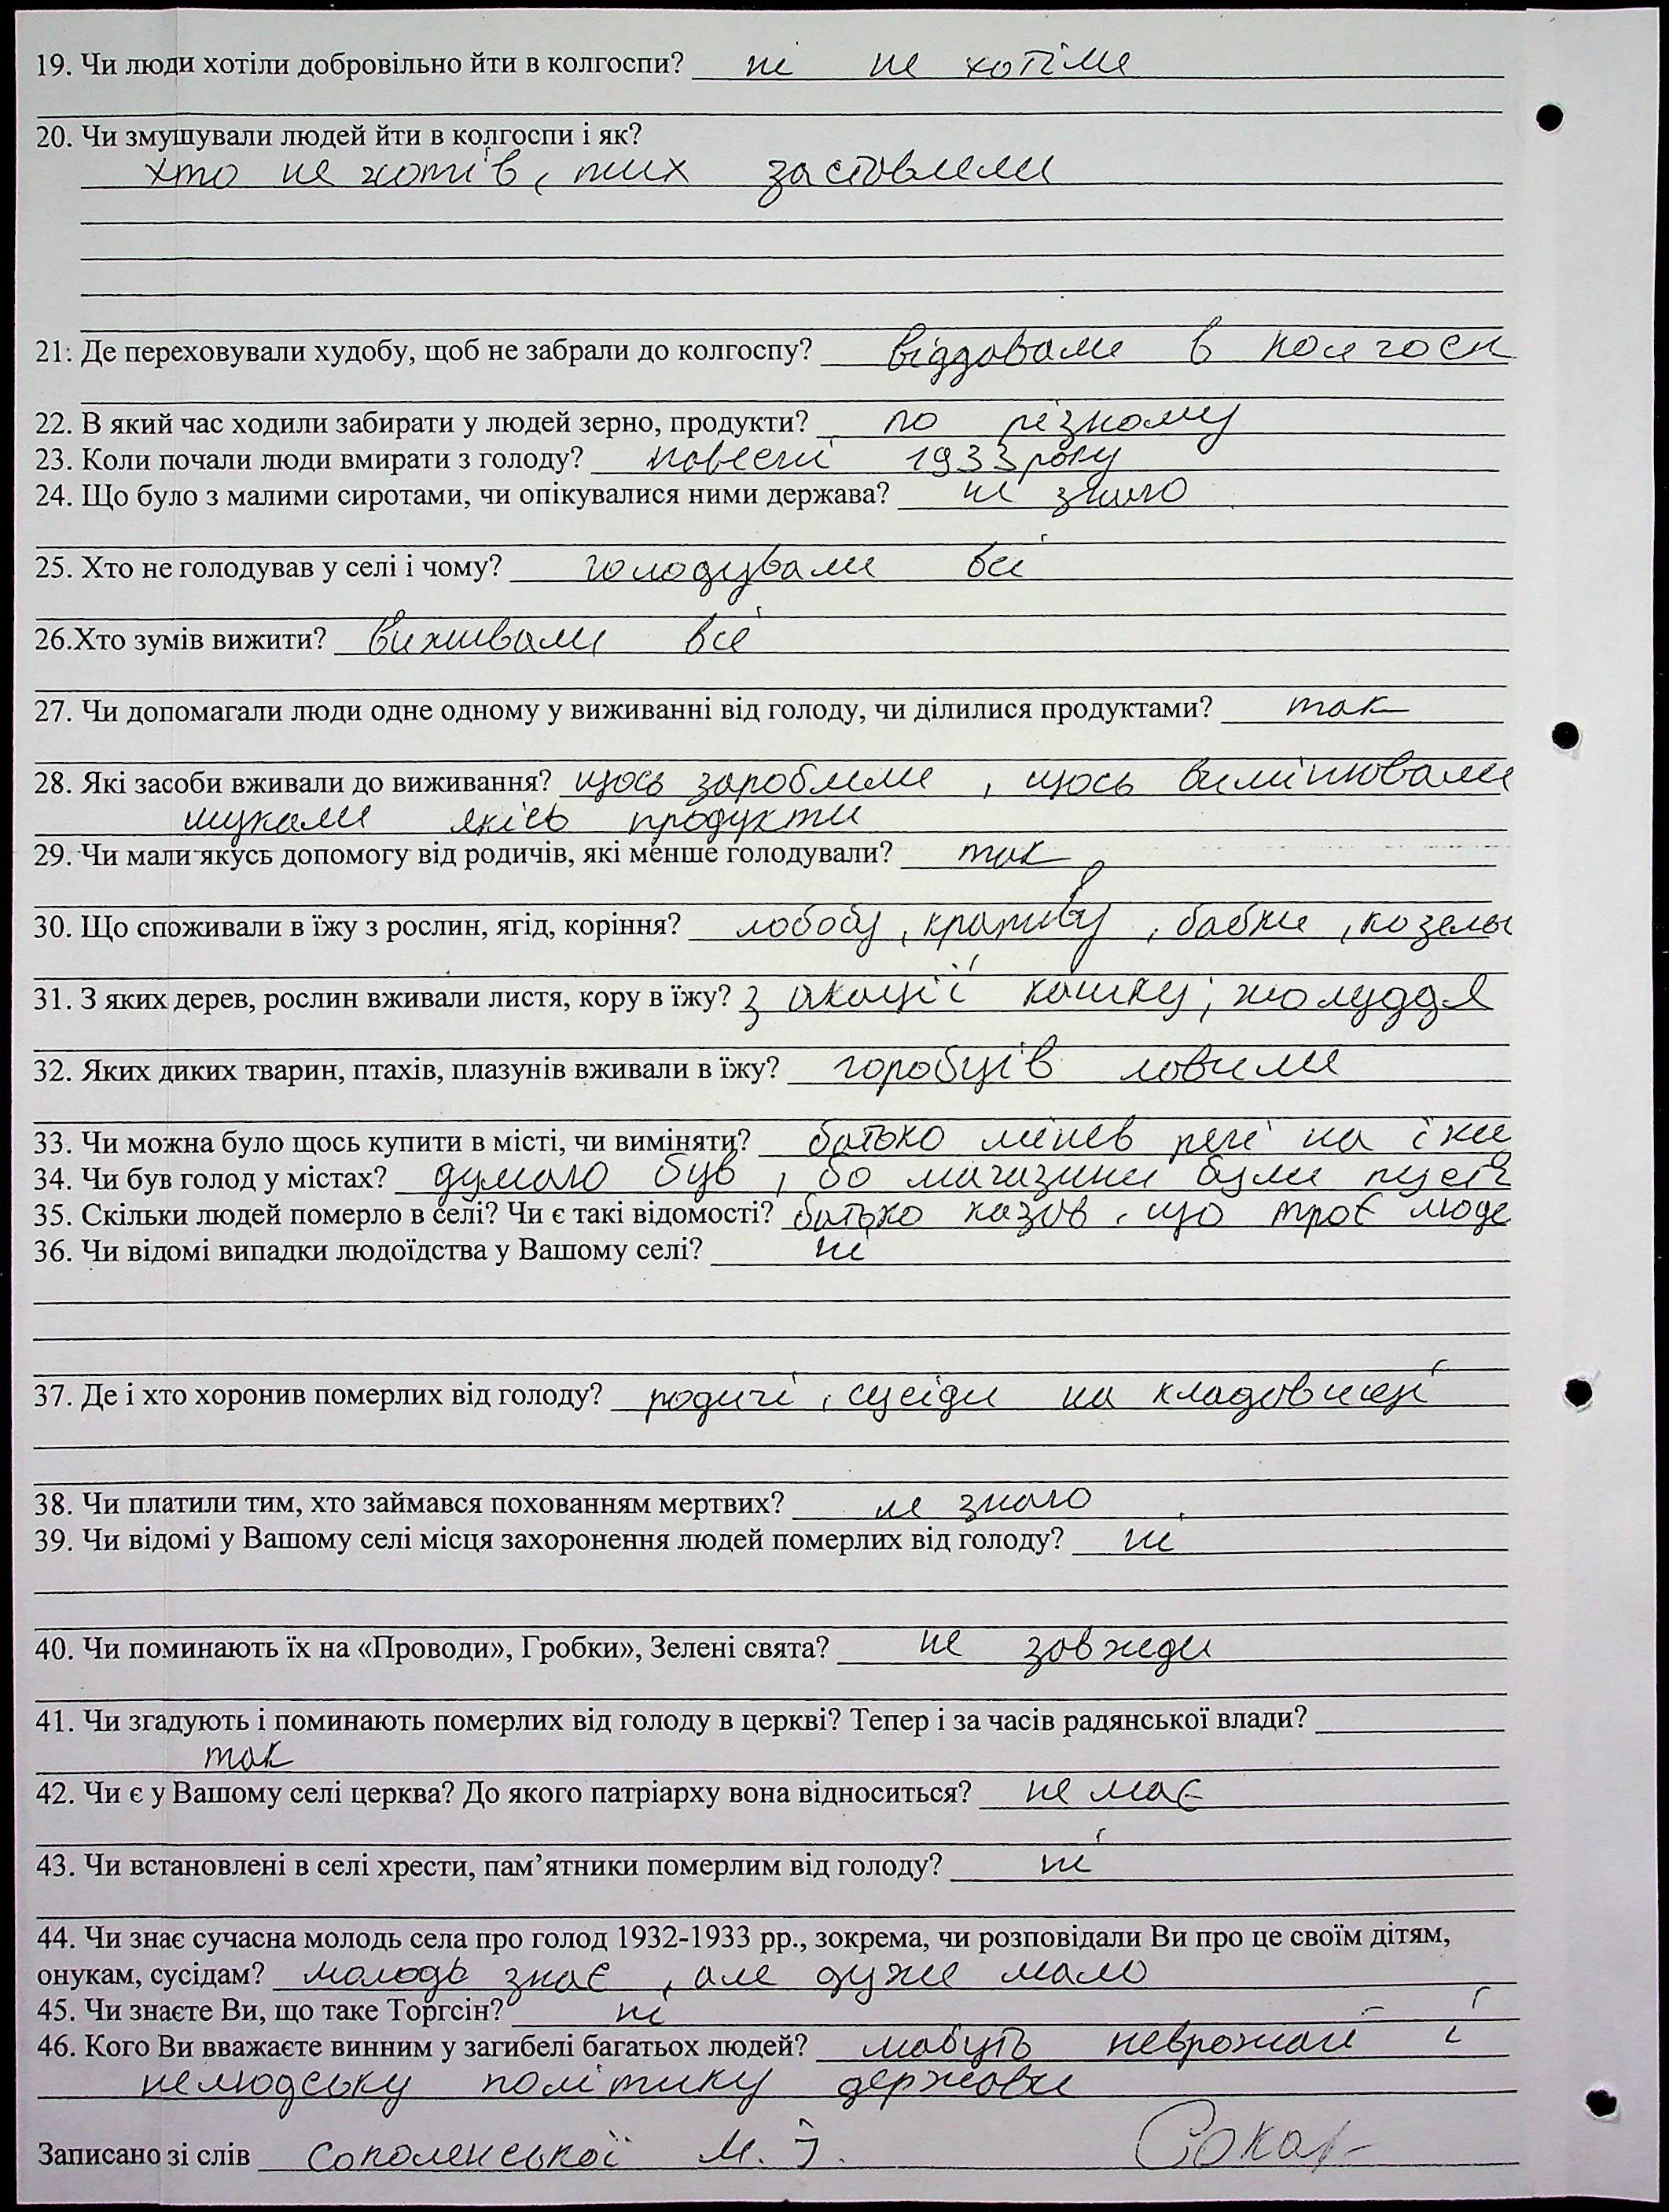 19. Чи люди хотіли добровільно йти в колгоспи? ні не хотіли
20. Чи змушували людей йти в колгоспи і як?
хто не хотів, тих заставляли
21. Де переховували худобу, щоб не забрали до колгоспу? віддавали в колгосп
22. В який час ходили забирати у людей зерно, продукти? по різному
23. Коли почали люди вмирати з голоду? навесні 1933 року
24. Що було з малими сиротами, чи опікувалися ними держава? не знаю
25. Хто не голодував у селі і чому? голодували всі
26.Хто зумів вижити? виживали всі
27. Чи допомагали люди одне одному у виживанні від голоду, чи ділилися продуктами? так
28. Які засоби вживали до виживання? щось заробляли, щось вимінювали
шукали якісь продукти
29. Чи мали якусь допомогу від родичів, які менше голодували? так
30. Що споживали в їжу з рослин, ягід, коріння? лободу, крапиву, бабки, козельц
31. З яких дерев, рослин вживали листя, кору в їжу? з акації кашку, жолуддя
32. Яких диких тварин, птахів, плазунів вживали в їжу? горобців ловили
33. Чи можна було щось купити в місті, чи виміняти? батько міняв речі на їжу
34. Чи був голод у містах? думаю був, бо магазини були пусті
35. Скільки людей померло в селі? Чи є такі відомості? батько казав, що троє люде
36. Чи відомі випадки людоїдства у Вашому селі? ні
37. Де і хто хоронив померлих від голоду? родичі, сусіди на кладовищі
38. Чи платили тим, хто займався похованням мертвих? не знаю
39. Чи відомі у Вашому селі місця захоронення людей померлих від голоду? ні
40. Чи поминають їх на «Проводи», Гробки», Зелені свята? не завжди
41. Чи згадують і поминають померлих від голоду в церкві? Тепер і за часів радянської влади?
так
42. Чи є у Вашому селі церква? До якого патріарху вона відноситься? не має
43. Чи встановлені в селі хрести, пам’ятники померлим від голоду? ні
44. Чи знає сучасна молодь села про голод 1932-1933 рр., зокрема, чи розповідали Ви про це своїм дітям,
онукам, сусідам? молодь знає, але дуже мало
45. Чи знаєте Ви, що таке Торгсін? ні
46. Кого Ви вважаєте винним у загибелі багатьох людей? мабуть неврожаї і
нелюдську політику держави
Записано зі слів Соколенської М. І.